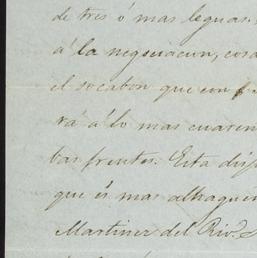 de tres ó mas leguas.
á la negociacion, cos
el socabon que con
rá á lo mas cuaren
bas frentes. Esta dis
que és mas alhague
Martinez del Rio.